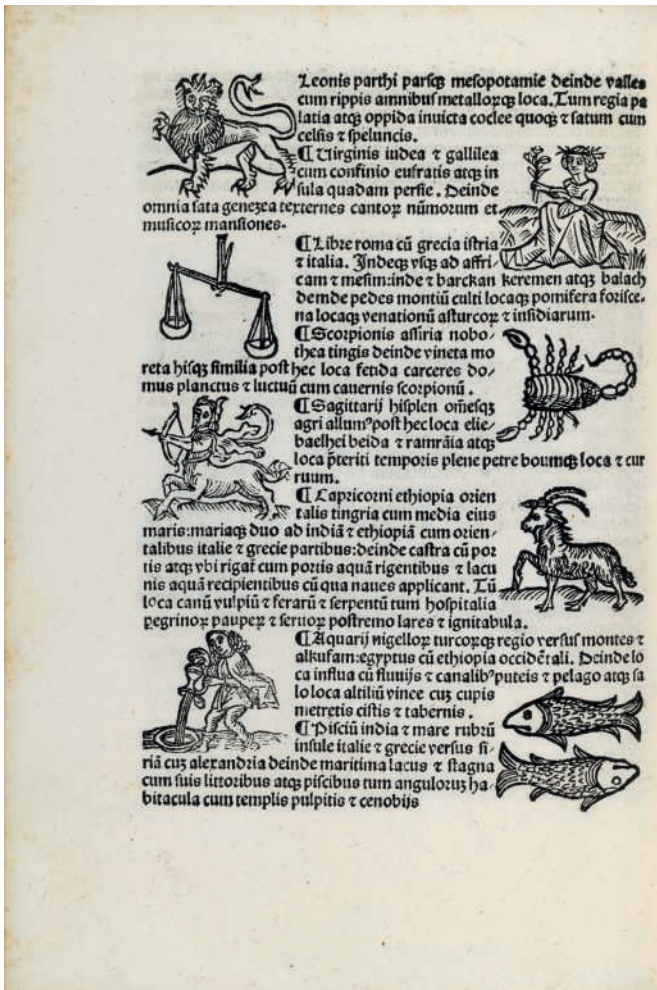 Leonis parthi parsqꝫ mesopotamie deinde valles
cum rippis amnibus metalloꝝqꝫ loca. Tum regia pa
latia atqꝫ oppida inuicta coclee quoqꝫ ⁊ satum cum
celsis ⁊ speluncis.
¶ Uirginis iudea ⁊ gallilea
cum confinio eufratis atqꝫ in
sula quadam persie. Deinde
omnia sata genezea texternes cantoꝝ nūmorum et
musicoꝝ mansiones.
¶ Libre roma cū grecia istria
⁊ italia. Indeqꝫ vsqꝫ ad affri-
cam ⁊ mesim:inde ⁊ barckan keremen atqꝫ balach
demde pedes montiū culti locaqꝫ pomifera forisce-
na locaqꝫ venationū asturcoꝝ ⁊ insidiarum.
¶ Scorpionis assiria nobo-
thea tingis deinde vineta mo
reta hisqꝫ similia post hec loca fetida carceres do-
mus planctus ⁊ luctuū cum cauernis scorpionū.
¶ Sagittarij hisplen om̄esqꝫ
agri allumꝰ post hec loca elie-
baelhei beida ⁊ ramrāia atqꝫ
loca p̄teriti temporis plene petre boumqꝫ loca ⁊ cur
ruum.
¶ Capricorni ethiopia orien
talis tingria cum media eius
maris:mariaqꝫ duo ad indiā ⁊ ethiopiā cum orien-
talibus italie ⁊ grecie partibus:deinde castra cū por
tis atqꝫ vbi rigat̄ cum portis aquā rigentibus ⁊ lacu
nis aquā recipientibus cū qua naues applicant. Tū
loca canū vulpiū ⁊ ferarū ⁊ serpentū tum hospitalia
ꝑegrinoꝝ paupeꝝ ⁊ seruoꝝ postremo lares ⁊ ignitabula.
¶ Aquarij nigelloꝝ turcoꝝqꝫ regio versus montes ⁊
alkufam:egyptus cū ethiopia occidētali. Deinde lo
ca influa cū fluuijs ⁊ canalibꝰ puteis ⁊ pelago atqꝫ sa
lo loca altiliū vince cuꝫ cupis
metretis cistis ⁊ tabernis.
¶ Pisciū india ⁊ mare rubrū
insule italie ⁊ grecie versus si-
riā cuꝫ alexandria deinde maritima lacus ⁊ stagna
cum suis littoribus atqꝫ piscibus tum anguloruꝫ ha-
bitacula cum templis pulpitis ⁊ cenobijs